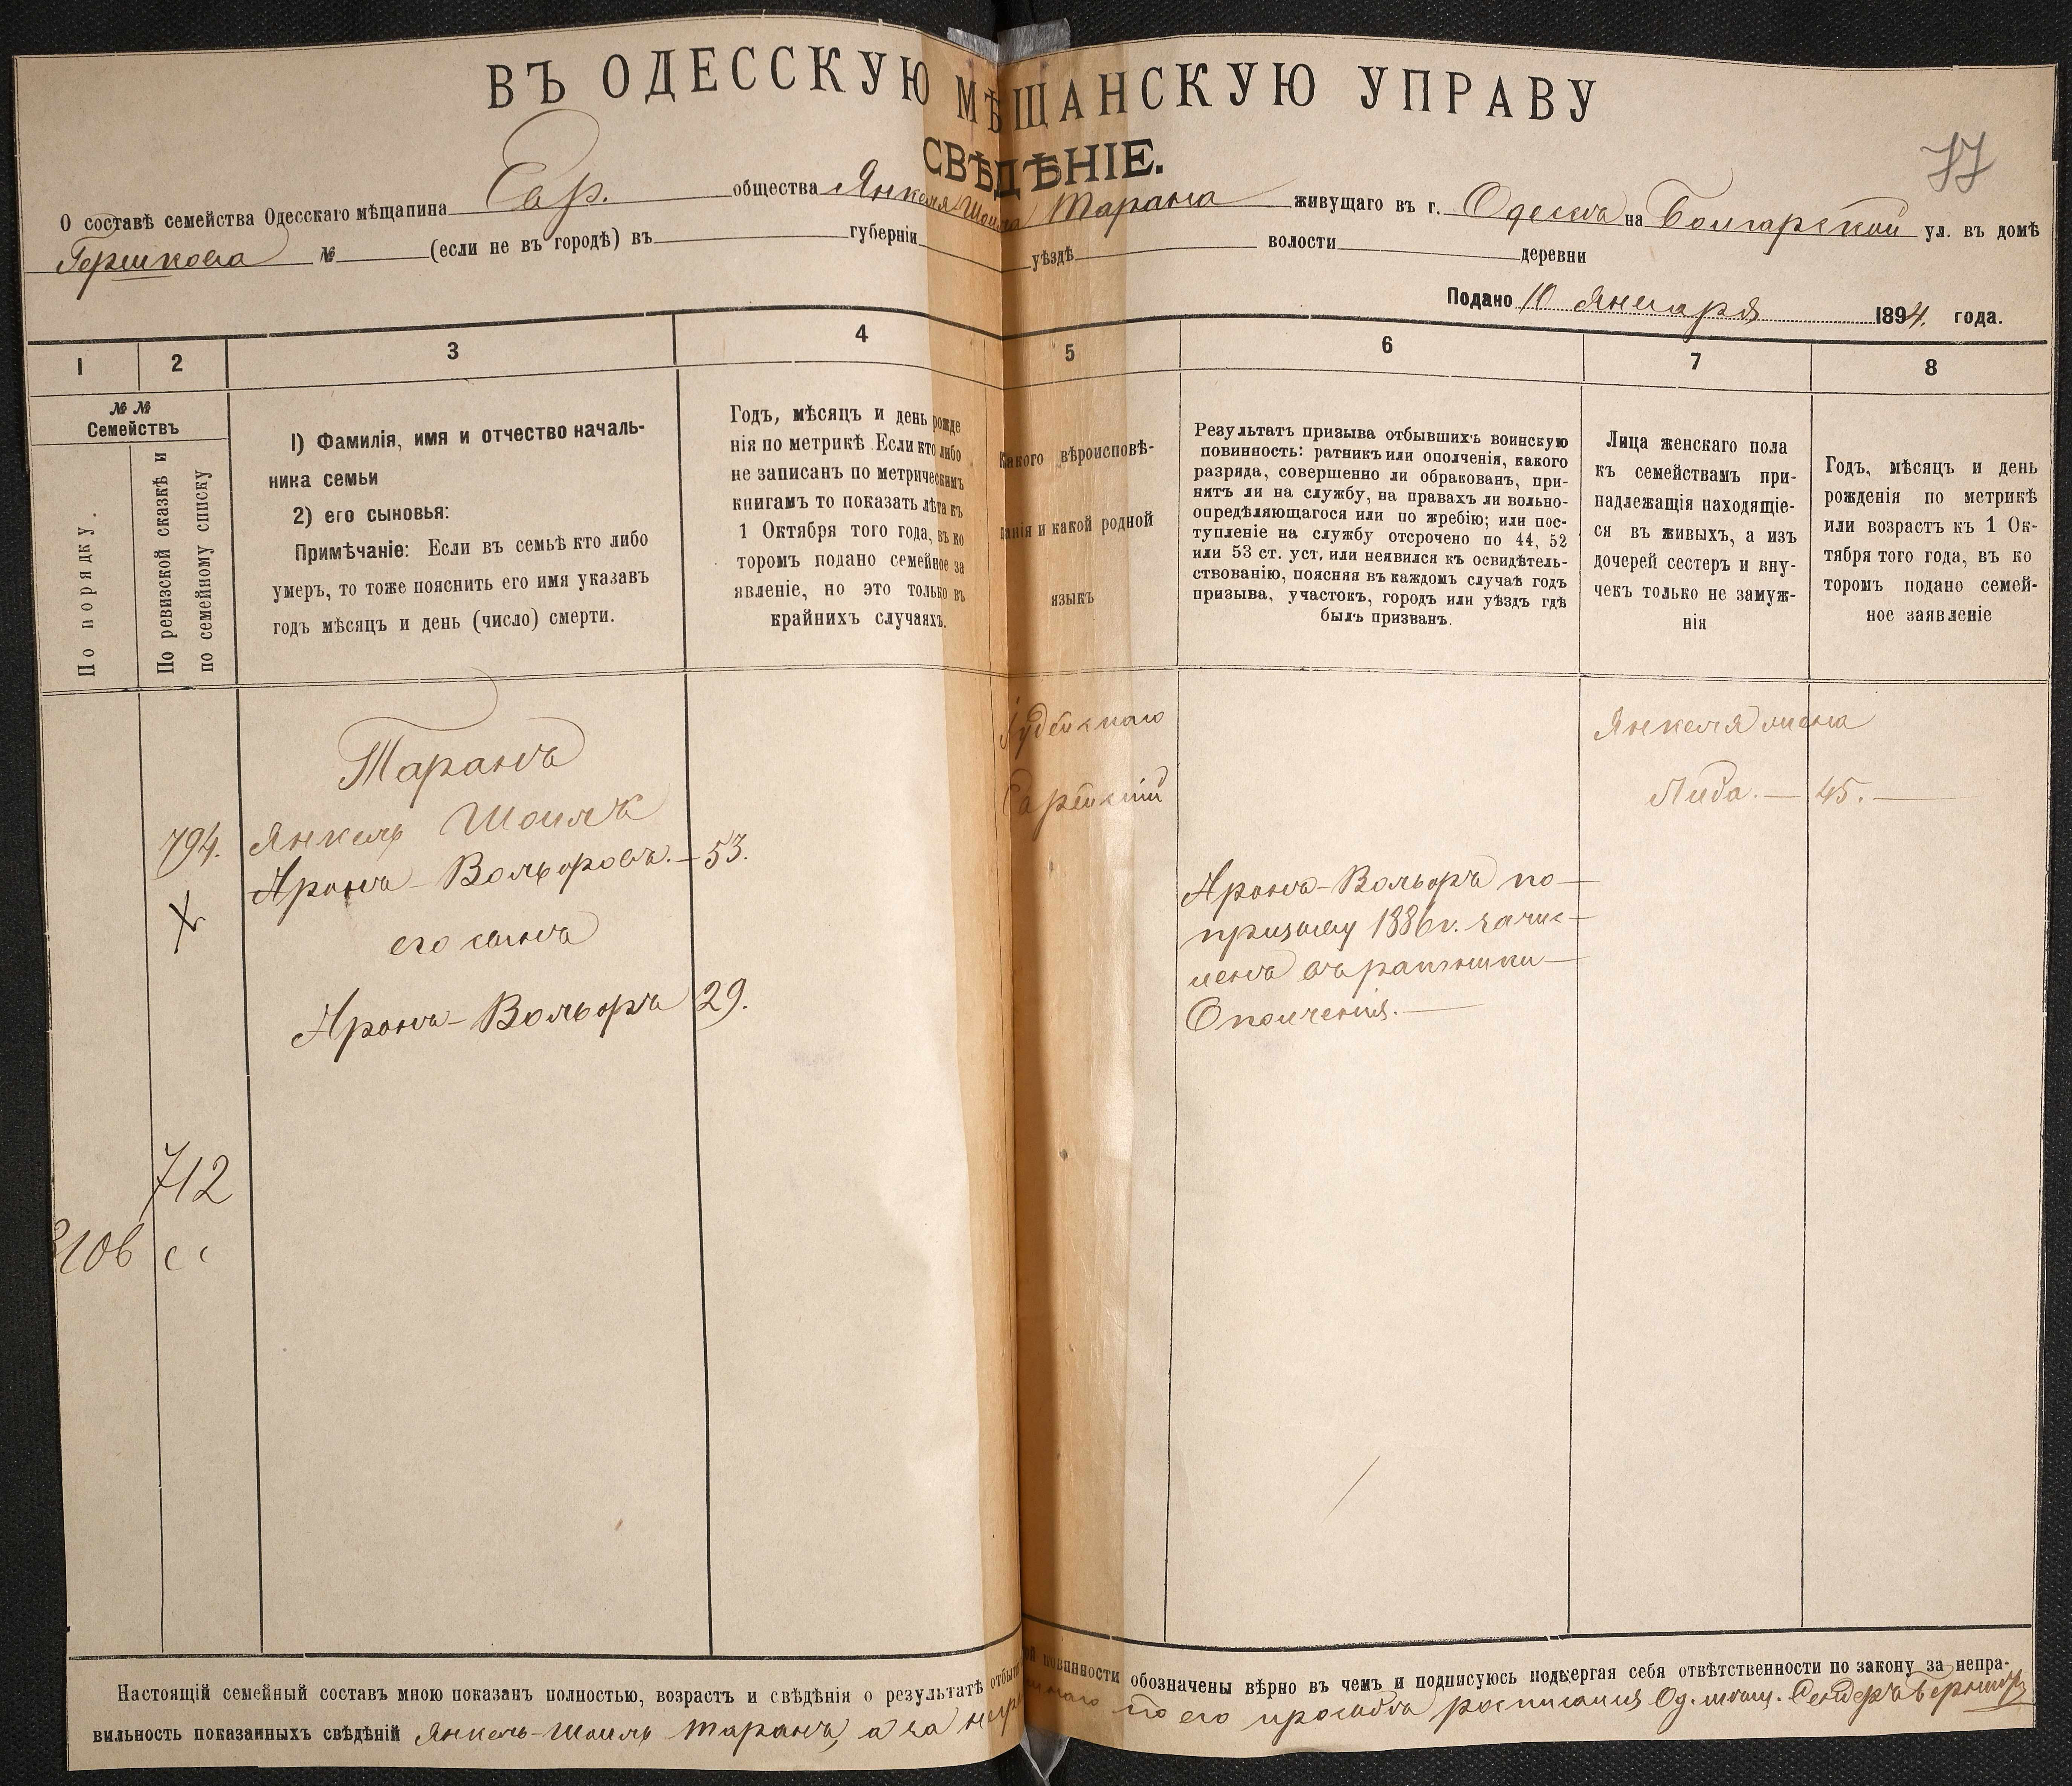 ВЪ ОДЕССКУЮ МѢЩАНСКУЮ УПРАВУ
СВѢДѢНІЕ.
77
О составѣ семейства Одесскаго мѣщанина Евр. общества Янкеля Шоиля Тарана живущаго въ г. Одессѣ на Болгарской ул. въ домѣ
Гершкова № (если не въ городѣ) въ губерніи уѣздѣ волости деревни
Подано 10 Января 1894. года.
1 2 3 4 5 6 7 8
№ №
Семействъ
По порядку.
По ревизской сказкѣ и
по семейному списку
1) Фамилія, имя и отчество началь-
ника семьи
2) его сыновья:
Примѣчаніе: Если въ семьѣ кто либо
умеръ, то тоже пояснить его имя указавъ
годъ мѣсяцъ и день (число) смерти.
Годъ, мѣсяцъ и день рожде
нія по метрикѣ Если кто либо
не записанъ по метрическимъ
книгамъ то показать лѣта къ
1 Октября того года, въ ко
торомъ подано семейное за
явленіе, но это только въ
крайнихъ случаяхъ.
Какого вѣроисповѣ-
данія и какой родной
языкъ
Результатъ призыва отбывшихъ воинскую
повинность: ратникъ или ополченія, какого
разряда, совершенно ли обракованъ, при-
нятъ ли на службу, на правахъ ли вольно-
опредѣляющагося или по жребію; или пос-
тупленіе на службу отсрочено по 44, 52
или 53 ст. уст, или неявился къ освидѣтель-
ствованію, поясняя въ каждомъ случаѣ годъ
призыва, участокъ, городъ или уѣздъ гдѣ
былъ призванъ.
Лица женскаго пола
къ семействамъ при-
надлежащія находящіе-
ся въ живыхъ, а изъ
дочерей сестеръ и вну-
чекъ только не замуж-
нія
Годъ, мѣсяцъ и день
рожденія по метрикѣ
или возрастъ къ 1 Ок-
тября того года, въ ко
торомъ подано семей-
ное заявленіе
Таранъ
794. Янкель Шоилъ
Аронъ-Вольфовъ.— 53.
X
его сынъ
Аронъ-Вольфъ 29.
712
3106
Іудейскаго
Еврейскій
Аронъ-Вольфъ по
призыву 1886г. зачис-
ленъ въ ратники
Ополченія.—
Янкеля жена
Либа.— 45.—
Настоящій семейный составъ мною показанъ полностью, возрастъ и свѣдѣнія о результатѣ отбытія воинской повинности обозначены вѣрно въ чемъ и подписуюсь подвергая себя отвѣтственности по закону за непра-
вильность показанныхъ свѣдѣній Янкель-Шоиль Таранъ, а за неграмотнаго по его просьбѣ росписался Од. мѣщ.